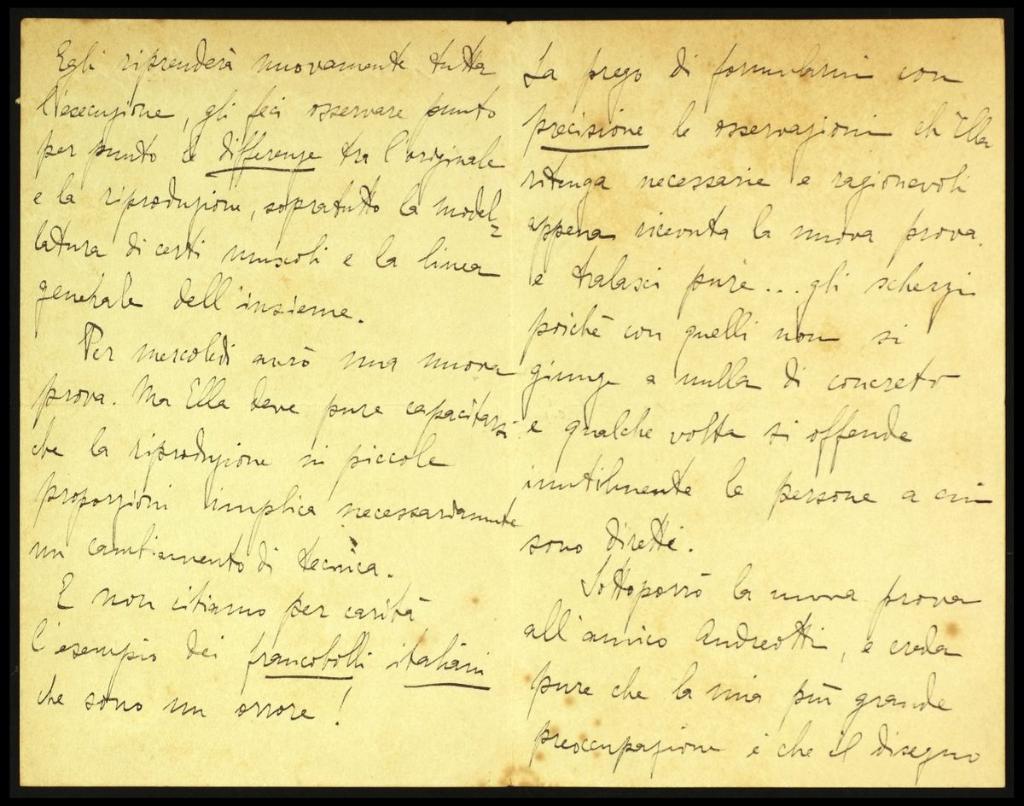 Egli riprenderà nuovamente tutta
l'esecuzione, gli feci osservare punto
per punto le differenze tra l'originale
e la riproduzione, sopratutto la model=
latura di certi muscoli e la linea
generale dell'insieme.
Per mercoledì avrò una nuova
prova. Ma Ella deve pure capacitarsi
che la riproduzione in piccole
proporzioni implica necessariamente
un cambiamento di tecnica.
E non citiamo per carità
l'esempio dei francobolli italiani
che sono un orrore!
La prego di formularmi con
precisione le osservazioni ch'Ella
ritenga necessarie e ragionevoli
appena ricevuta la nuova prova.
e tralasci pure... gli scherzi
poichè con quelli non si
giunge a nulla di concreto
e qualche volta si offende
inutilmente le persone a cui
sono diretti.
Sottoporrò la nuova prova
all'amico Andreotti, e creda
pure che la mia più grande
preoccupazione è che il disegno